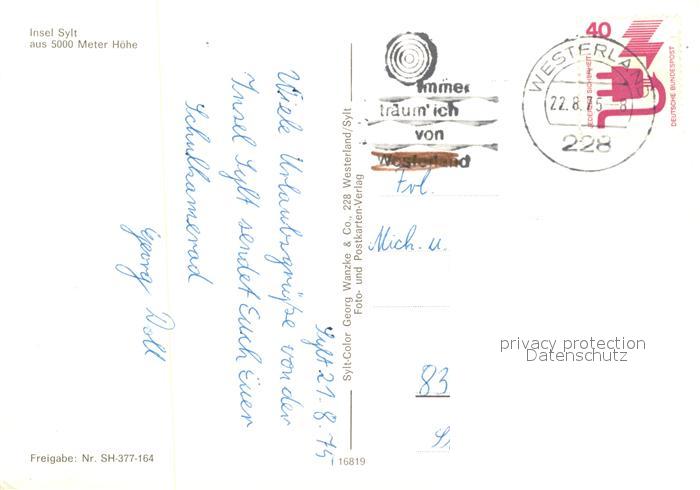 Insel Sylt
aus 5000 Meter Höhe
Sylt 21.8.75
Viele Urlaubsgrüße von der
Insel Sylt sendet Euch Euer
Schulkamerad
Georg Doll
Freigabe: Nr. SH-377-164
Sylt-Color Georg Wanzke & Co., 228 Westerland/Sylt
Foto- und Postkarten-Verlag
I 16819
immer
träum' ich
von
Westerland
WESTERLAND
22.8.75-8
228
40
JEDERZEIT SICHERHEIT
DEUTSCHE BUNDESPOST
Frl.
Mich. u.
83
privacy protection
Datenschutz